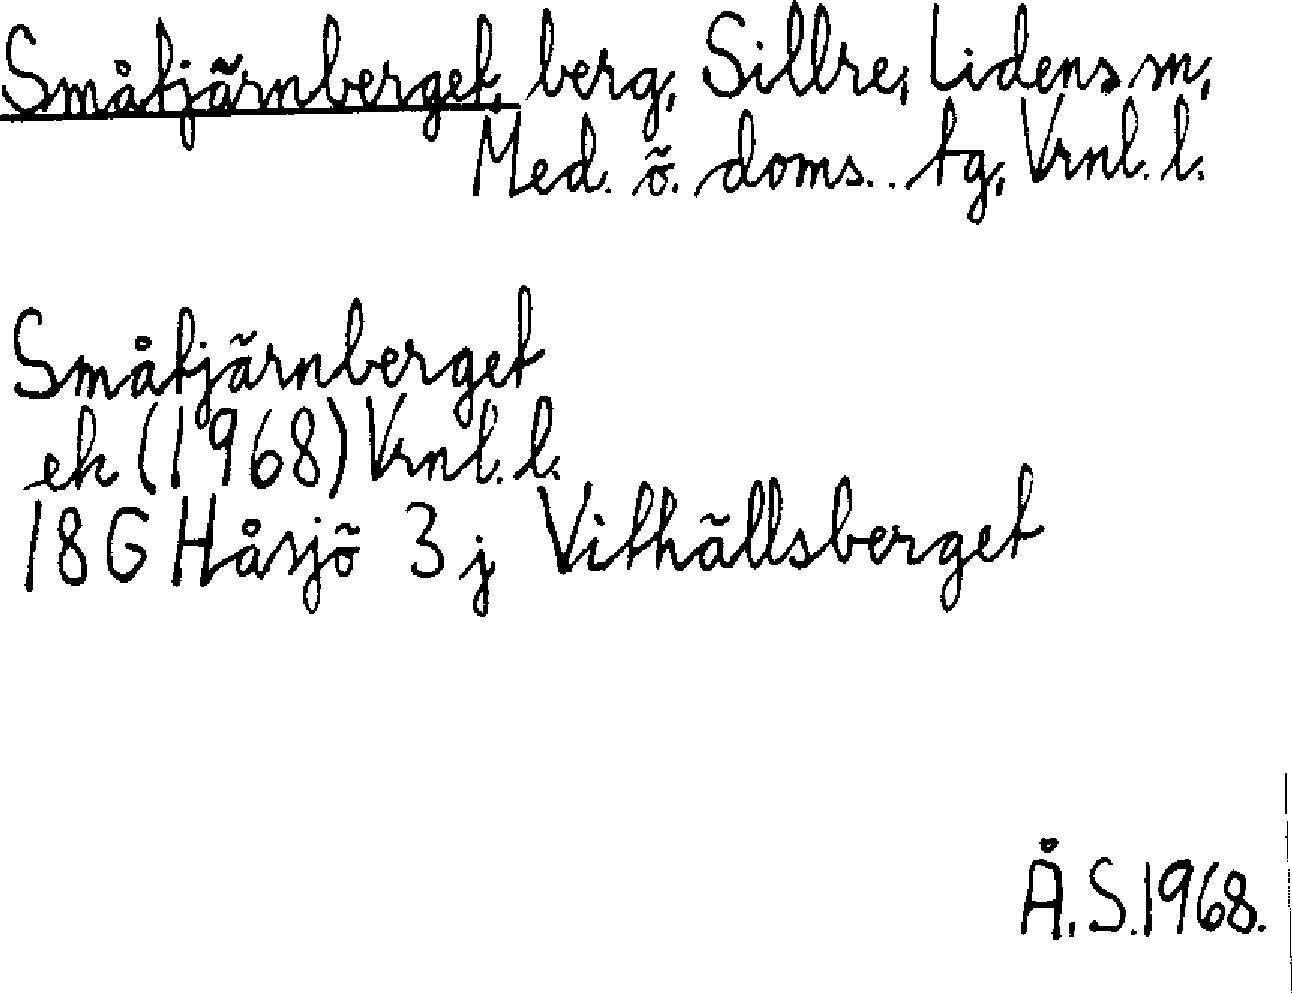 Småtjärnberget, berg, Sillre, Lidens sn,
Med. ö. doms. tg, Vrnl. l.
Småtjärnberget
ek (1968) Vrnl. l.
18 G Håsjö 3 j Vithällsberget
Å. S. 1968.